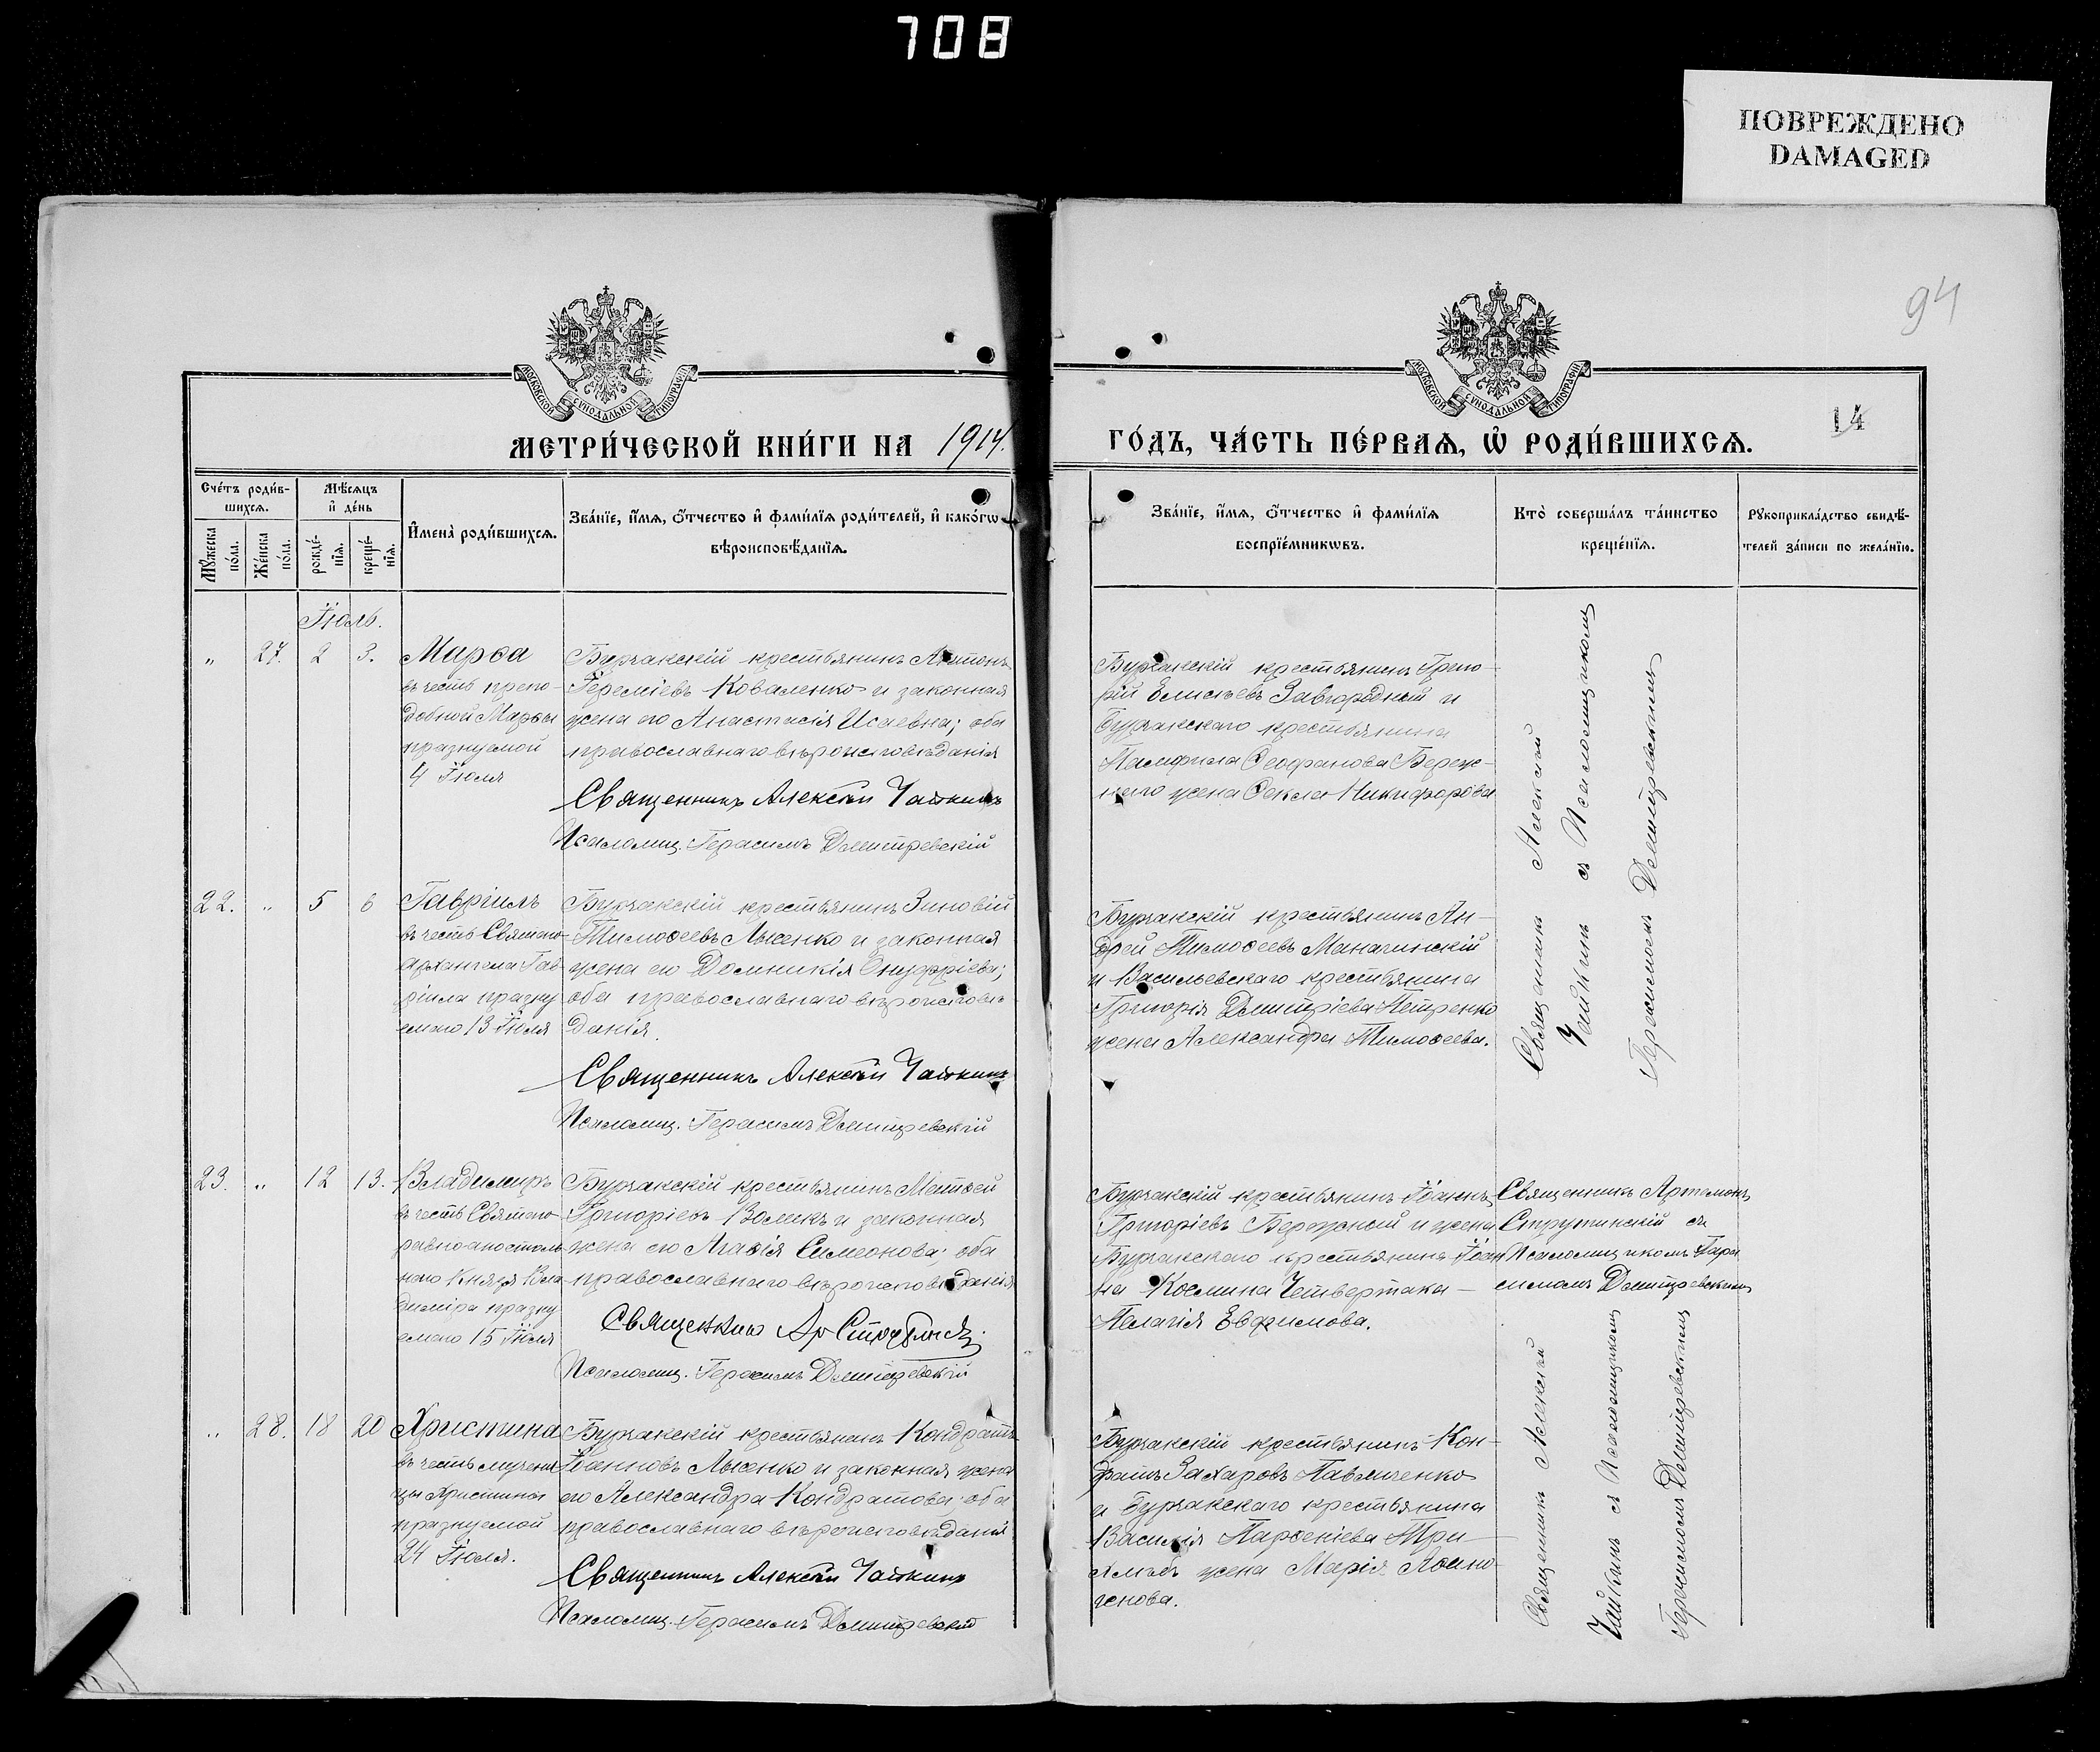 708
ПОВРЕЖДЕНО
DAMAGED
94
МОСКОВСКОЙ СѴНОДАЛЬНОЙ ТИПОГРАФІИ
МОСКОВСКОЙ СѴНОДАЛЬНОЙ ТИПОГРАФІИ
14
МЕТРИ́ЧЕСКОЙ КНИ́ГИ НА 1914.
ГО́ДЪ, ЧА́СТЬ ПЕ́РВАѦ, Ѡ҆ РОДИ́ВШИХСѦ.
Сче́тъ роди́в-
шихсѧ.
Мꙋжеска
по́ла.
Же́нска
по́ла.
Мѣ́сѧцъ
и҆ де́нь
рожде́-
нїѧ.
креще́-
нїѧ.
И҆мена̀ роди́вшихсѧ.
Зва́нїе, и҆́мѧ, ѻ҆́тчество и҆ фами́лїѧ роди́телей, и҆ како́гѡ
вѣроисповѣ́данїѧ.
Зва́нїе, и҆́мѧ, ѻ҆́тчество и҆ фами́лїѧ
воспрїе́мникѡвъ.
Кто̀ соверша́лъ та́инство
креще́нїѧ.
Рꙋкоприкла́дство свидѣ́-
телей за́писи по жела́нїю.
Іюль.
„ 27. 2 3.
Марѳа
въ честь препо-
добной Марѳы
празнуемой
4 Іюля
Бурчакскій крестьянинъ Антонъ
Іереміевъ Коваленко и законная
жена его Анастасія Исаевна; оба
православнаго вѣроисповѣданія
Священникъ Алексѣй Чайкинъ
Псаломщ. Герасимъ Дмитревскій
Бурчакскій крестьянинъ Григо-
рій Елисѣевъ Завгородный и
Бурчакскаго крестьянина
Памфила Ѳеофанова Береж-
ного жена Ѳекла Никифорова
Священникъ Алексѣй
Чайкинъ съ Псаломщикомъ
Герасимомъ Дмитревскимъ
22. „ 5 6
Гавріилъ
въ честь Святаго
Архангела Гав-
ріила празну
емаго 13 Іюля
Бурчакскій крестьянинъ Зиновій
Тимоѳеевъ Лысенко и законная
жена его Домникія Онуфріева;
оба православнаго вѣроисповѣ-
данія.
Священникъ Алексѣй Чайкинъ
Псаломщ. Герасимъ Дмитревскій
Бурчакскій крестьянинъ Ан-
дрей Тимоѳеевъ Маначинскій
и Васильевскаго крестьянина
Григорія Дмитріева Петренко
жена Александра Тимоѳеева.
23. „ 12 13.
Владимиръ
въ честь Святаго
равноапостоль-
наго Князя Вла
диміра празну
емаго 15 Іюля
Бурчакскій крестьянинъ Матѳей
Григоріевъ Воликъ и законная
жена его Агаѳія Симеонова; оба
православнаго вѣроисповѣданія
Священникъ Ар Струтинскі
Псаломщ. Герасимъ Дмитревскій
Бурчакскій крестьянинъ Іоаннъ
Григоріевъ Бережный и жена
Бурчакскаго крестьянина Іоан
на Космина Четвертака —
Пелагія Евфимова.
Священникъ Артемонъ
Струтинскій съ
Псаломщикомъ Гера
симомъ Дмитревскимъ
„ 28. 18 20
Христина
въ честь мучени
цы Христины
празнуемой
24 Іюля.
Бурчакскій крестьянинъ Кондратъ
Іоанновъ Лысенко и законная жена
его Александра Кондратова; оба
православнаго вѣроисповѣданія
Священникъ Алексѣй Чайкинъ
Псаломщ. Герасимъ Дмитревскій
Бурчакскій крестьянинъ Кон-
дратъ Захаровъ Павличенко
и Бурчакскаго крестьянина
Василія Парѳеніева Три-
хлѣбъ жена Марія Аѳино-
генова.
Священникъ Алексѣй
Чайкинъ съ Псаломщикомъ
Герасимомъ Дмитревскимъ